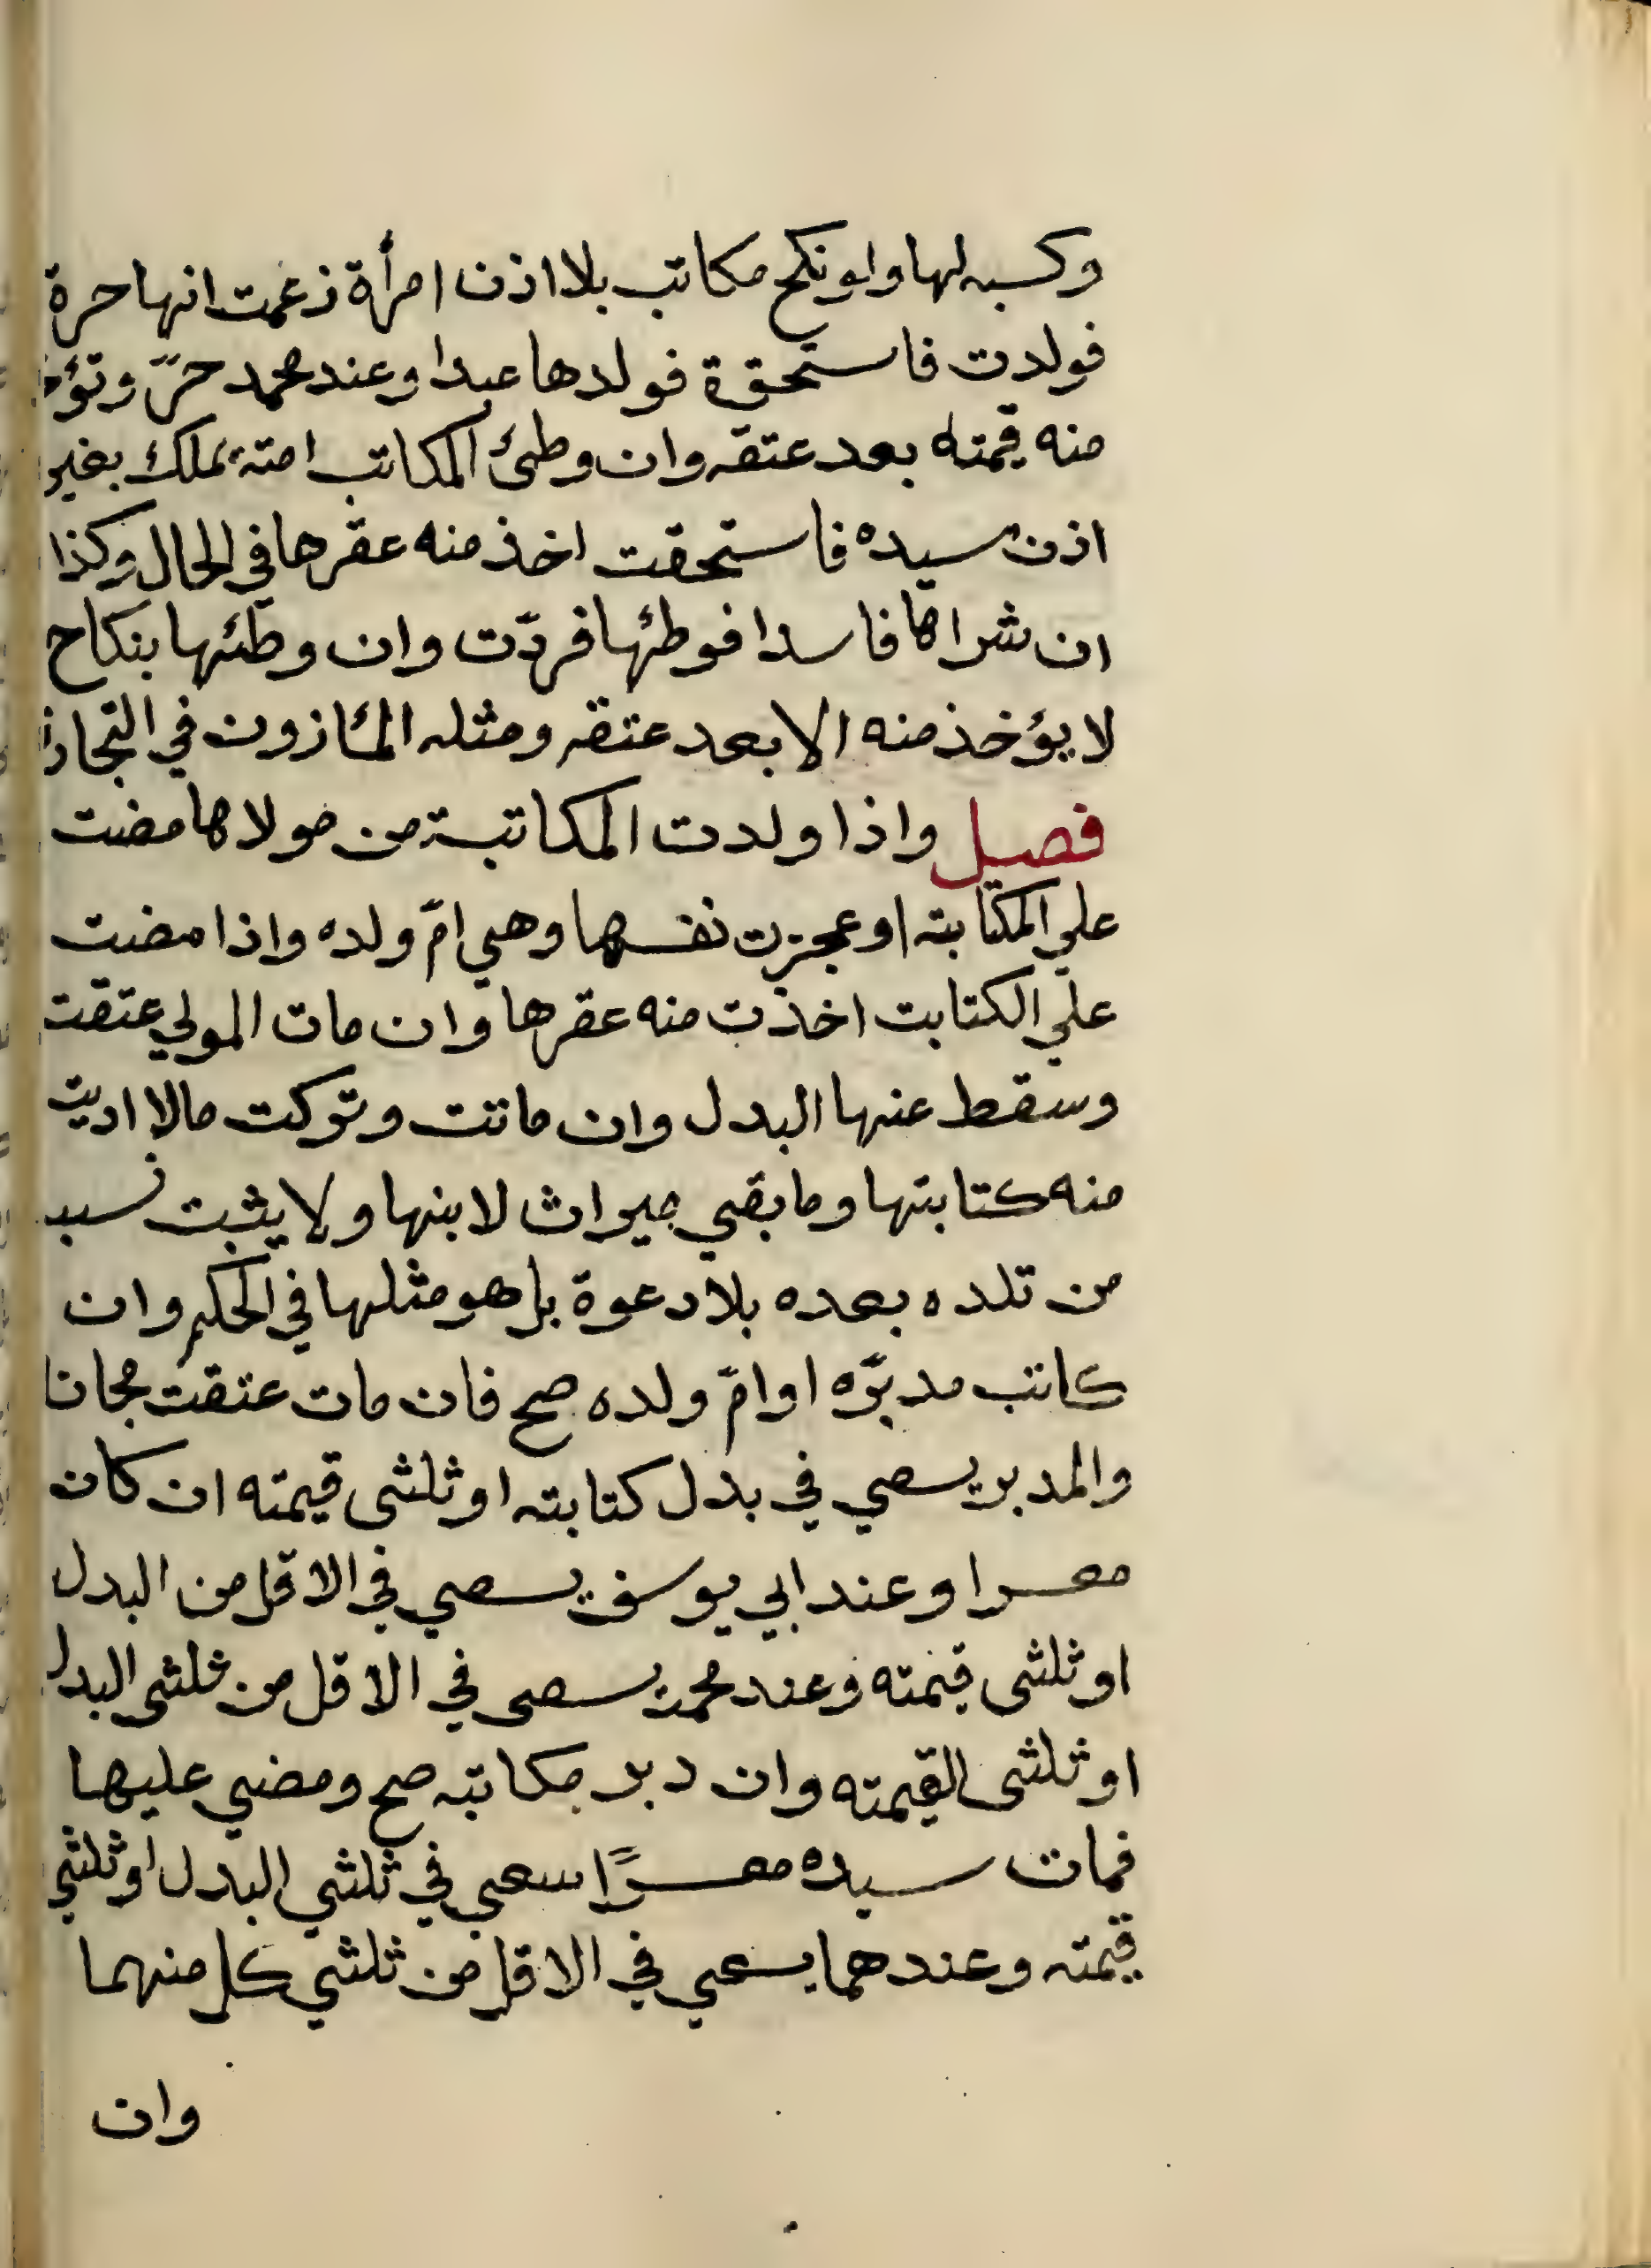 وكسبه لها ولو نكح مكاتب بلا اذن امرأة زعمت انها حرة
فولدت فاستحقة فولدها عبدا وعند محمد حرّ وتؤخذ
منه قيمته بعد عتقه وان وطئ المكاتب امته بملك بغير
اذن سيده فاستحقت اخذ منه عقرها في الحال وكذا
ان شراها فاسدا فوطئها فردّت وان وطئها بنكاح
لا يؤخذ منه الا بعد عتقه ومثله المأذون في التجارة
فصل واذا ولدت المكاتبة من مولاها مضت
علي المكتابته او عجزت نفسها وهي امّ ولده واذا مضت
علي الكتابت اخذت منه عقرها وان مات المولي عتقت
وسقط عنها البدل وان ماتت وتركت مالا اديت
منه كتابتها وما بقي ميراث لابنها ولا يثبت نسب
من تلده بعده بلا دعوة بل هو مثلها في الحكم وان
كاتب مدبّره او امّ ولده صح فان مات عتقت مجانا
والمدبر يسعي في بدل كتابته او ثلثى قيمته ان كان
معسرا وعند ابي يوسف يسعي في الاقل من البدل
او ثلثى قيمته وعند محمد يسعى في الاقل من ثلثى البدل
او ثلثى القيمته وان دبر مكاتبه صح ومضي عليها
فمات سيده معسرًا سعي في ثلثي البدل او ثلثي
قيمته وعندهما يسعي في الاقل من ثلثي كل منهما
وان